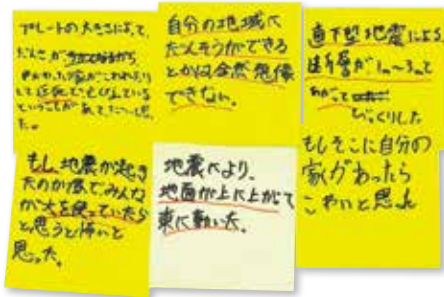 プレートの大きさによって、
だんそうが
家がこわれたり
して
ということが
た。
自分の地域に
だんそうができる
とかは全然想像
できない。
直下型地震による
段差が1m〜3mと
びっくりした
もしそこに自分の
家があったら
こわいと思った
もし、地震が起き
たのが昼でみんな
が火を使っていたら
と思うと怖いと
思った。
地震により、
地面が上に上がって
東に動いた。